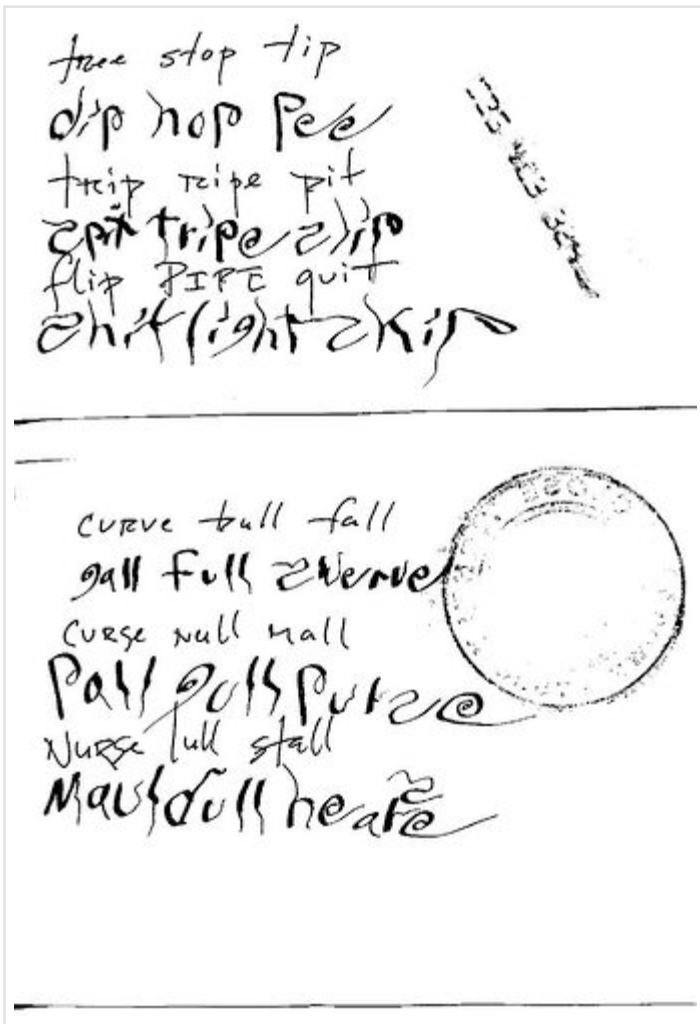 tree stop tip
dip hop pee
trip ripe pit
spit tripe ship
flip PIPE quit
shit light skip
curve bull fall
gall full swerve
curse null mall
Pall gull purse
Nurse lull stall
Maul dull